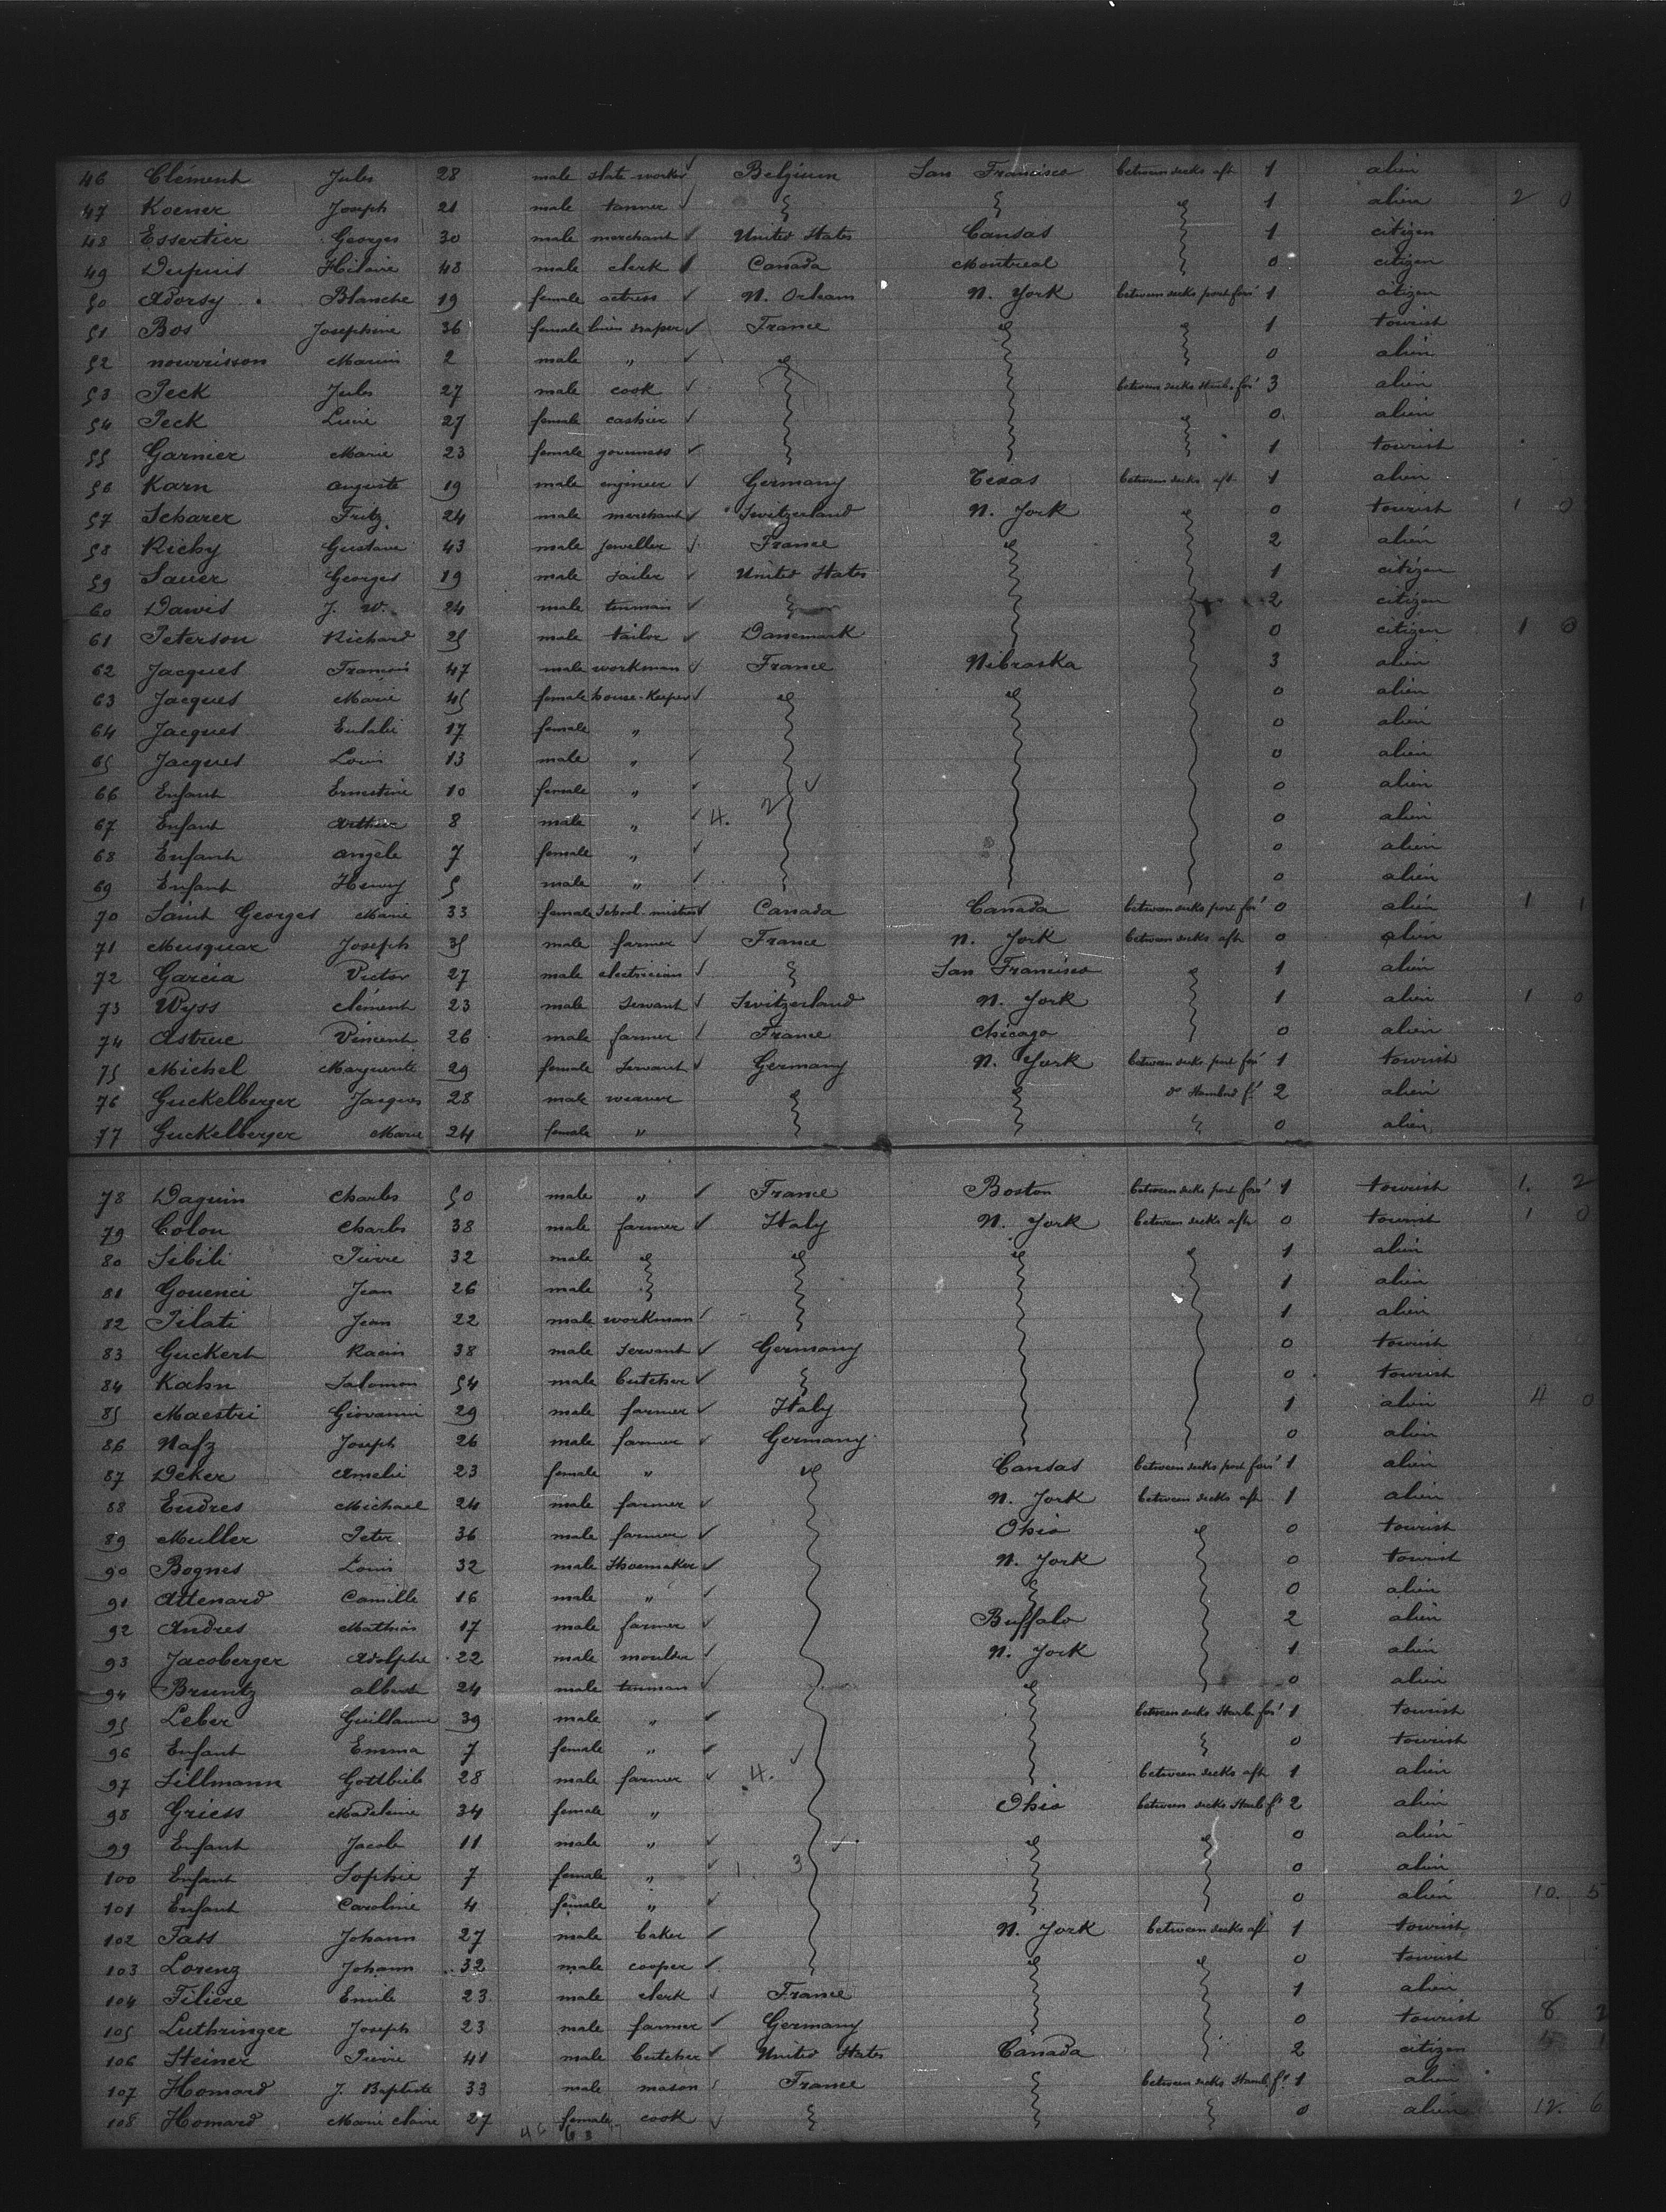 46 Clément Jules 28 male slate-worker Belgium San Francisco between decks aft 1 alien
47 Koener Joseph 21 male tanner 1 alien 2 0
48 Essertier Georges 30 male merchant United States Cansas 1 citizen
49 Dupuis Hilaire 48 male clerk Canada Montreal 0 citizen
50 Adorsy Blanche 19 female actress N. Orleans N. York between decks port for' 1 citizen
51 Bos Josephine 36 female linen draper France 1 tourist
52 nourrisson Marius 2 male " 0 alien
53 Peck Jules 27 male cook between decks Starb. for' 3 alien
54 Peck Lucie 27 female cashier 0 alien
55 Garnier Marie 23 female governess 1 tourist
56 Karn auguste 19 male engineer Germany Texas between decks aft 1 alien
57 Scharer Fritz 24 male merchant Switzerland N. York 0 tourist 1 0
58 Richy Gustave 43 male Jeweller France 2 alien
59 Sauer Georges 19 male sailer United States 1 citizen
60 Dawis J. W. 24 male tinman 2 citizen
61 Peterson Richard 25 male tailor Danemark 0 citizen 1 0
62 Jacques François 47 male workman France Nibraska 3 alien
63 Jacques Marie 45 female house-Keeper 0 alien
64 Jacques Eulalie 17 female " 0 alien
65 Jacques Louis 13 male " 0 alien
66 Enfant Ernestine 10 female " 0 alien
67 Enfant Arthur 8 male " 4. 2 0 alien
68 Enfant angèle 7 female " 0 alien
69 Enfant Henry 5 male " 0 alien
70 Saint Georges Marie 33 female School-mistress Canada Canada between decks port for' 0 alien 1 1
71 Musquar Joseph 35 male farmer France N. York between decks aft 0 alien
72 Garcia Victor 27 male electrician San Francisco 1 alien
73 Wyss clément 23 male Servant Switzerland N. York 1 alien 1 0
74 Astruc Vincent 26 male farmer France Chicago 0 alien
75 Michel Marguerite 29 female Servant Germany N. York between decks port for' 1 tourist
76 Guckelberger Jacques 28 male weaver 2 alien
77 Guckelberger Marie 24 female " 0 alien
78 Daguin Charles 50 male " France Boston between decks port for' 1 tourist 1. 2
79 Colon Charles 38 male farmer Italy N. York between decks aft 0 tourist 1 0
80 Sibili Pierre 32 male 1 alien
81 Gouenci Jean 26 male 1 alien
82 Pilati Jean 22 male workman 1 alien
83 Guckert Racin 38 male Servant Germany 0 tourist
84 Kahn Salomon 54 male butcher 0 tourist
85 Maestri Giovanni 29 male farmer Italy 1 alien 4 0
86 Nafz Joseph 26 male farmer Germany 0 alien
87 Deker Amelie 23 female " Cansas between decks port for' 1 alien
88 Endres Michael 24 male farmer N. York between decks aft 1 alien
89 Muller Peter 36 male farmer Ohio 0 tourist
90 Bognes Louis 32 male Shoemaker N. York 0 tourist
91 Attenard Camille 16 male " 0 alien
92 Andres Mathias 17 male farmer Buffalo 2 alien
93 Jacoberger Adolphe 22 male moulder N. York 1 alien
94 Bruntz albert 24 male tinman 0 alien
95 Leber Guillaume 39 male " between decks Starb. for' 1 tourist
96 Enfant Emma 7 female " 0 tourist
97 Sillmann Gottlieb 28 male farmer 4. between decks aft 1 alien
98 Griess Madeleine 34 female " Ohio between decks Starb f' 2 alien
99 Enfant Jacob 11 male " 0 alien
100 Enfant Sophie 7 female " 1. 3 0 alien
101 Enfant Caroline 4 female " 0 alien 10. 5
102 Fass Johann 27 male baker N. York between decks aft 1 tourist
103 Lorenz Johann 32 male cooper 0 tourist
104 Filière Emile 23 male clerk France 1 alien
105 Luthringer Joseph 23 male farmer Germany 0 tourist 8 2
106 Steiner Pierre 41 male butcher United States Canada 2 citizen 1
107 Homard J. Baptiste 33 male mason France between decks Starb f' 1 alien
108 Homard Marie claire 27 female cook 0 alien 12. 6